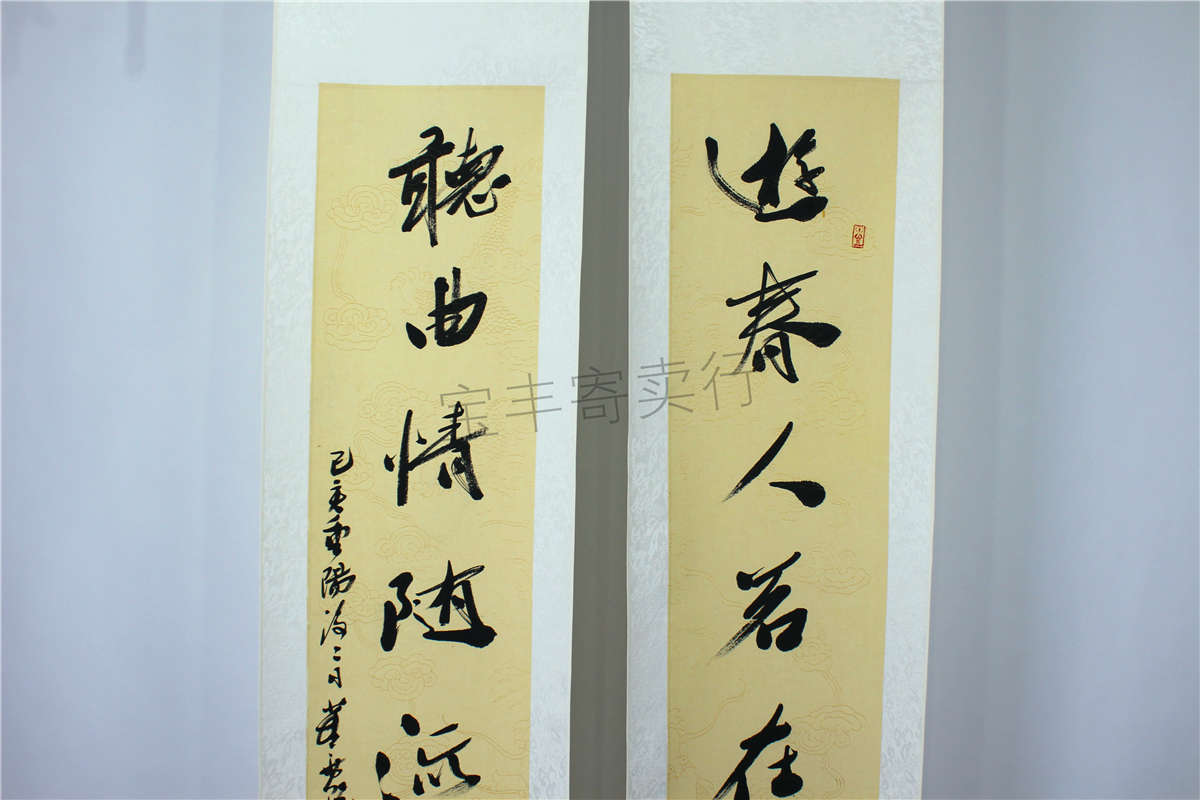 遊春人若在
聽曲情随流
己亥重陽後二日
宝丰寄卖行